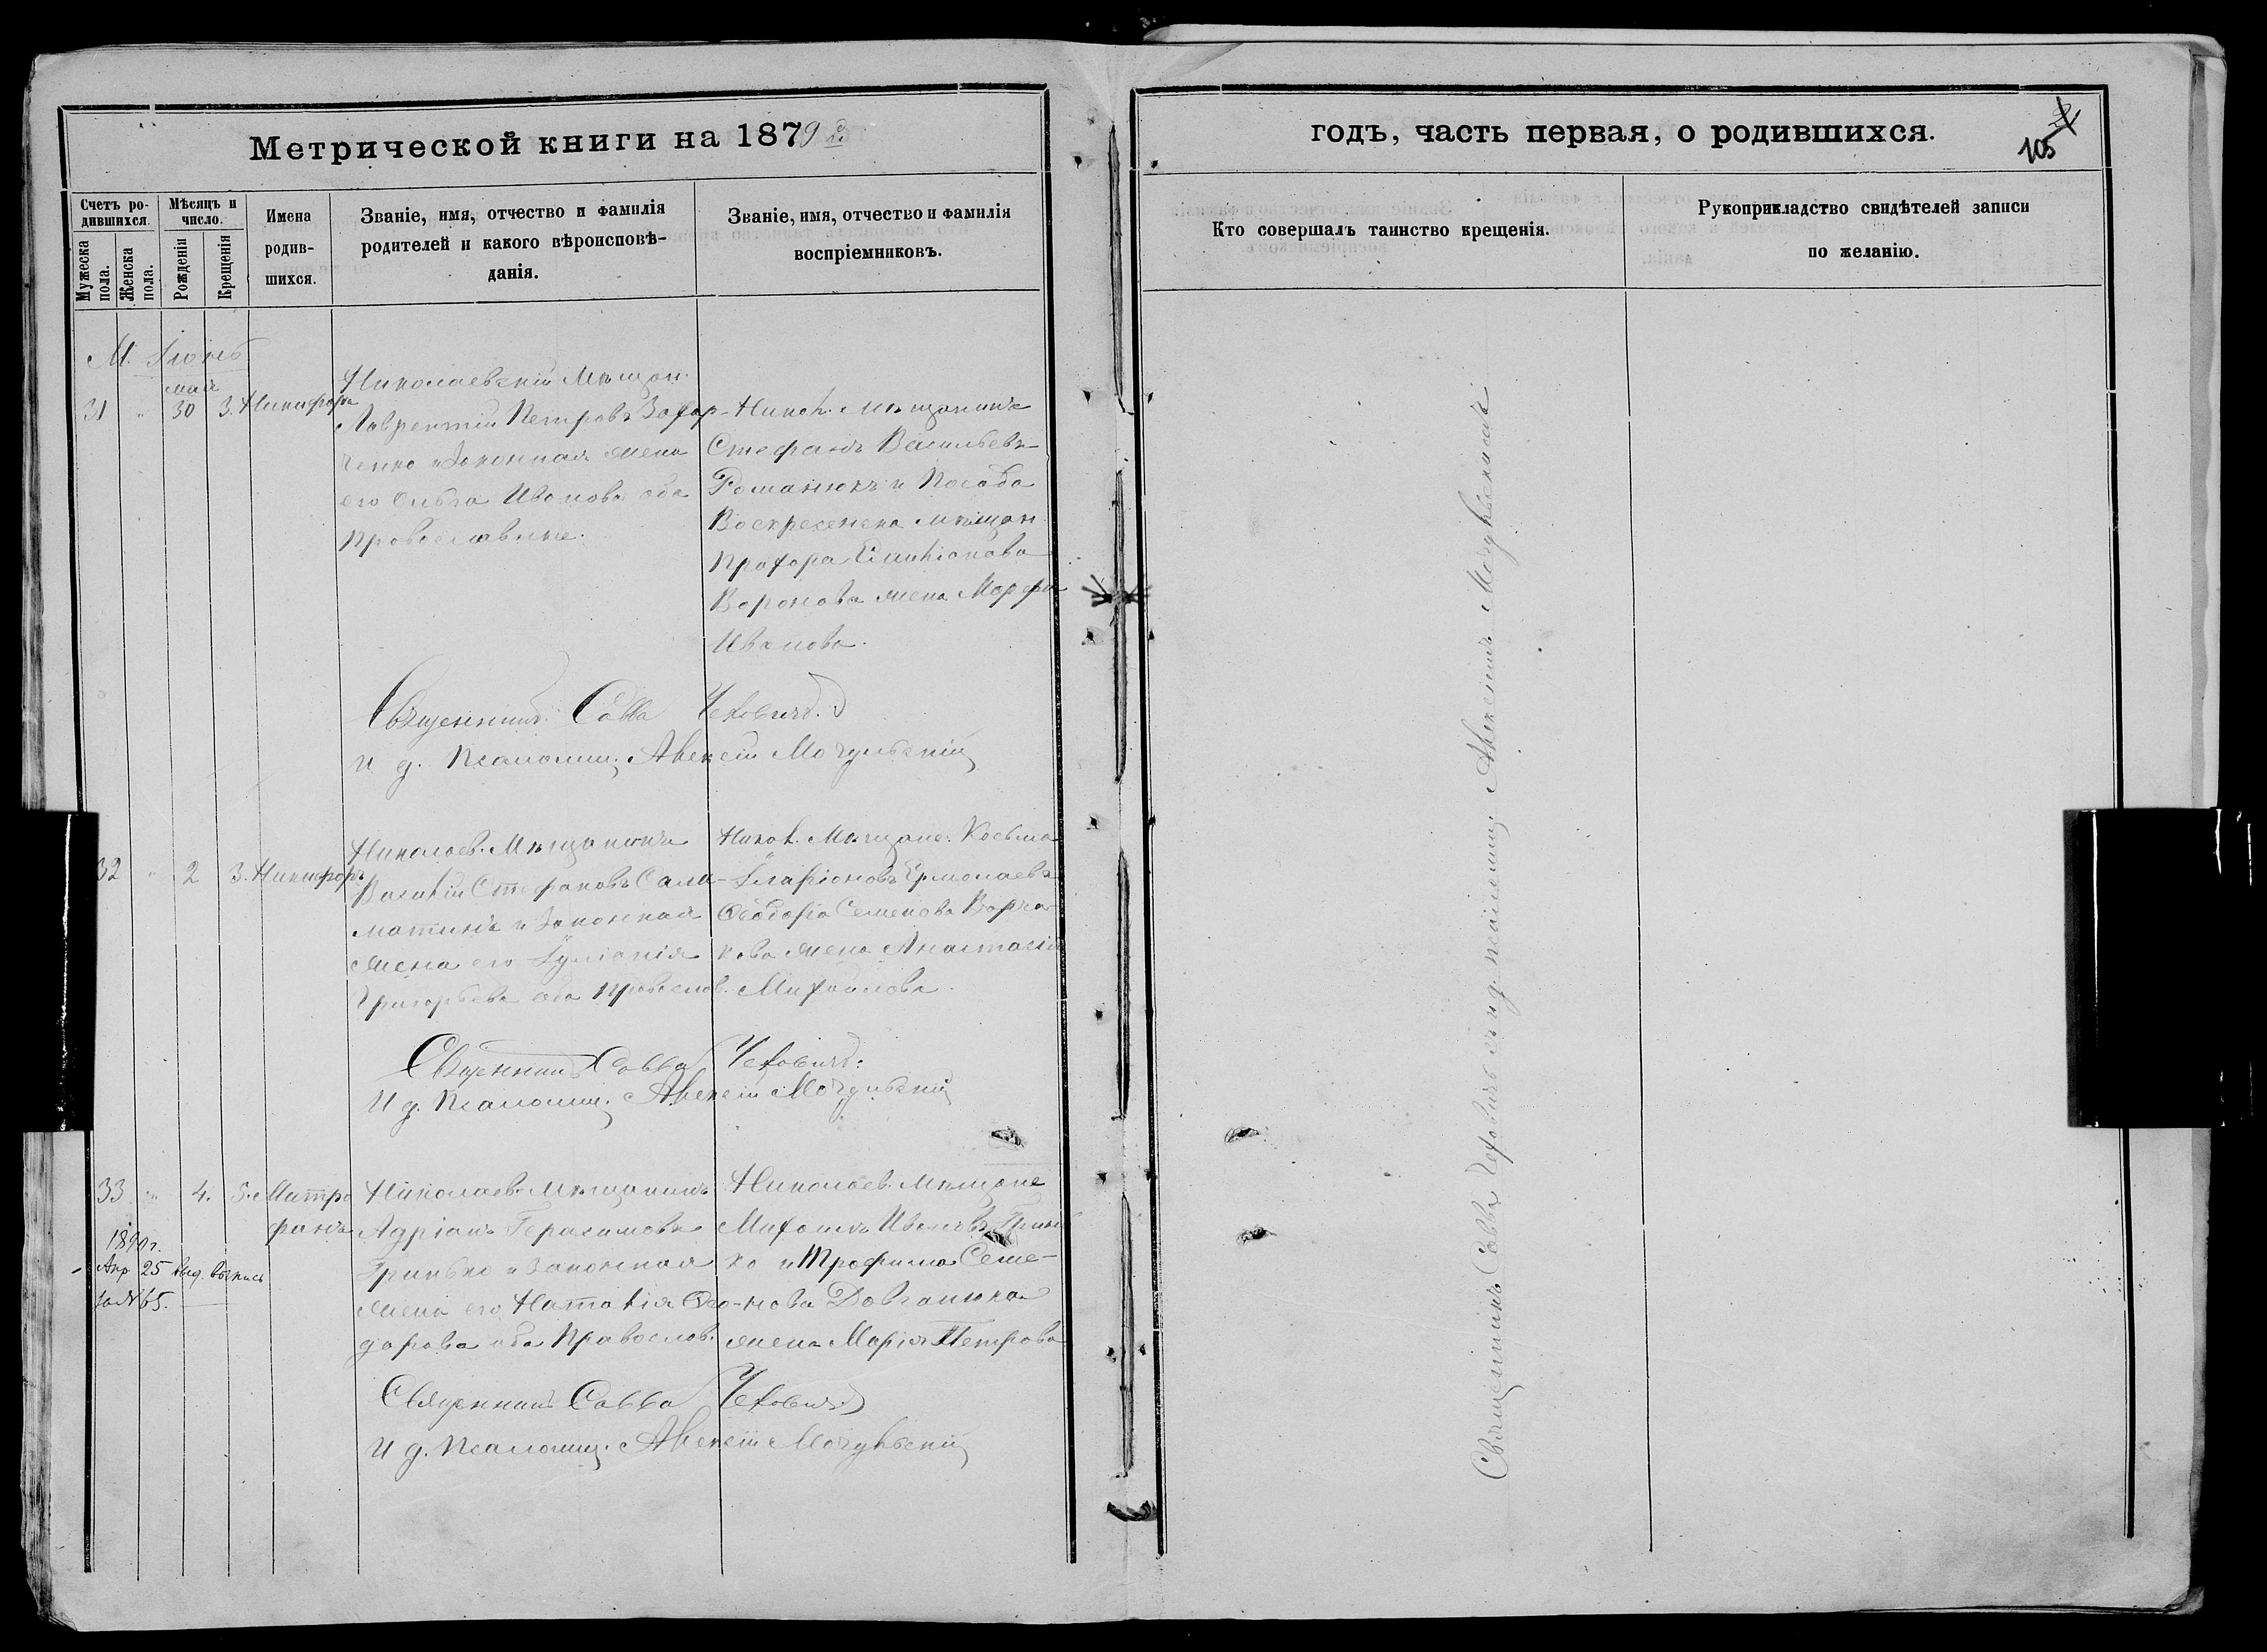 Метрической книги на 1879 г.
Счетъ родившихся.
Мужеска пола.
Женска пола.
Мѣсяцъ и число.
Рожденія
Крещенія
Имена родившихся.
Званіе, имя, отчество и фамилія
родителей и какого вѣроисповѣ-
данія.
Званіе, имя, отчество и фамилія
воспріемниковъ.
М. Іюнь
мая
31 " 30 3. Никифоръ
Николаевскій Мѣщан.
Лаврентій Петровъ Захар-
ченко и Законная жена
его Ольга Иванова оба
православные.
Никол. мѣщанинъ
Стефанъ Васильевъ
Романюкъ и Посада
Воскресенска мѣщан.
Прохора
Воронова жена Марфа
Иванова.
Священникъ Савва Чеховичъ.
И д. Псаломщ. Алексій Могульскій
32 " 2 3. Никифоръ
Николаев. Мѣщанинъ
Василій Стефановъ Сали-
матинъ и Законная
жена его Іуліанія
Григорьева оба православ.
Никол. Мѣщане: Косьма
Иларіоновъ Ермолаевъ
Ѳеодора Семенова
кова жена Анастасія
Михайлова.
Священникъ Савва Чеховичъ.
И д. Псаломщ. Алексій Могульскій
33 " 4. 5. Митро
фанъ
1890 г.
Апр 25 выд. выпись
за № 65.
Николаев. мѣщанинъ
Адріанъ Герасимовъ
Гринько и Законная
жена его Наталія Ѳео-
дорова оба Православ.
Николаев. мѣщане
Михаилъ Ивановъ Гринь
ко и Трофима Семе-
нова Довганюка
жена Марія Петрова
Священникъ Савва Чеховичъ
И д. Псаломщ. Алексій Могульскій
годъ, часть первая, о родившихся.
105
Кто совершалъ таинство крещенія.
Рукоприкладство свидѣтелей записи
по желанію.
Священникъ Савва Чеховичъ съ и д. псаломщ. Алексѣемъ Могульскимъ